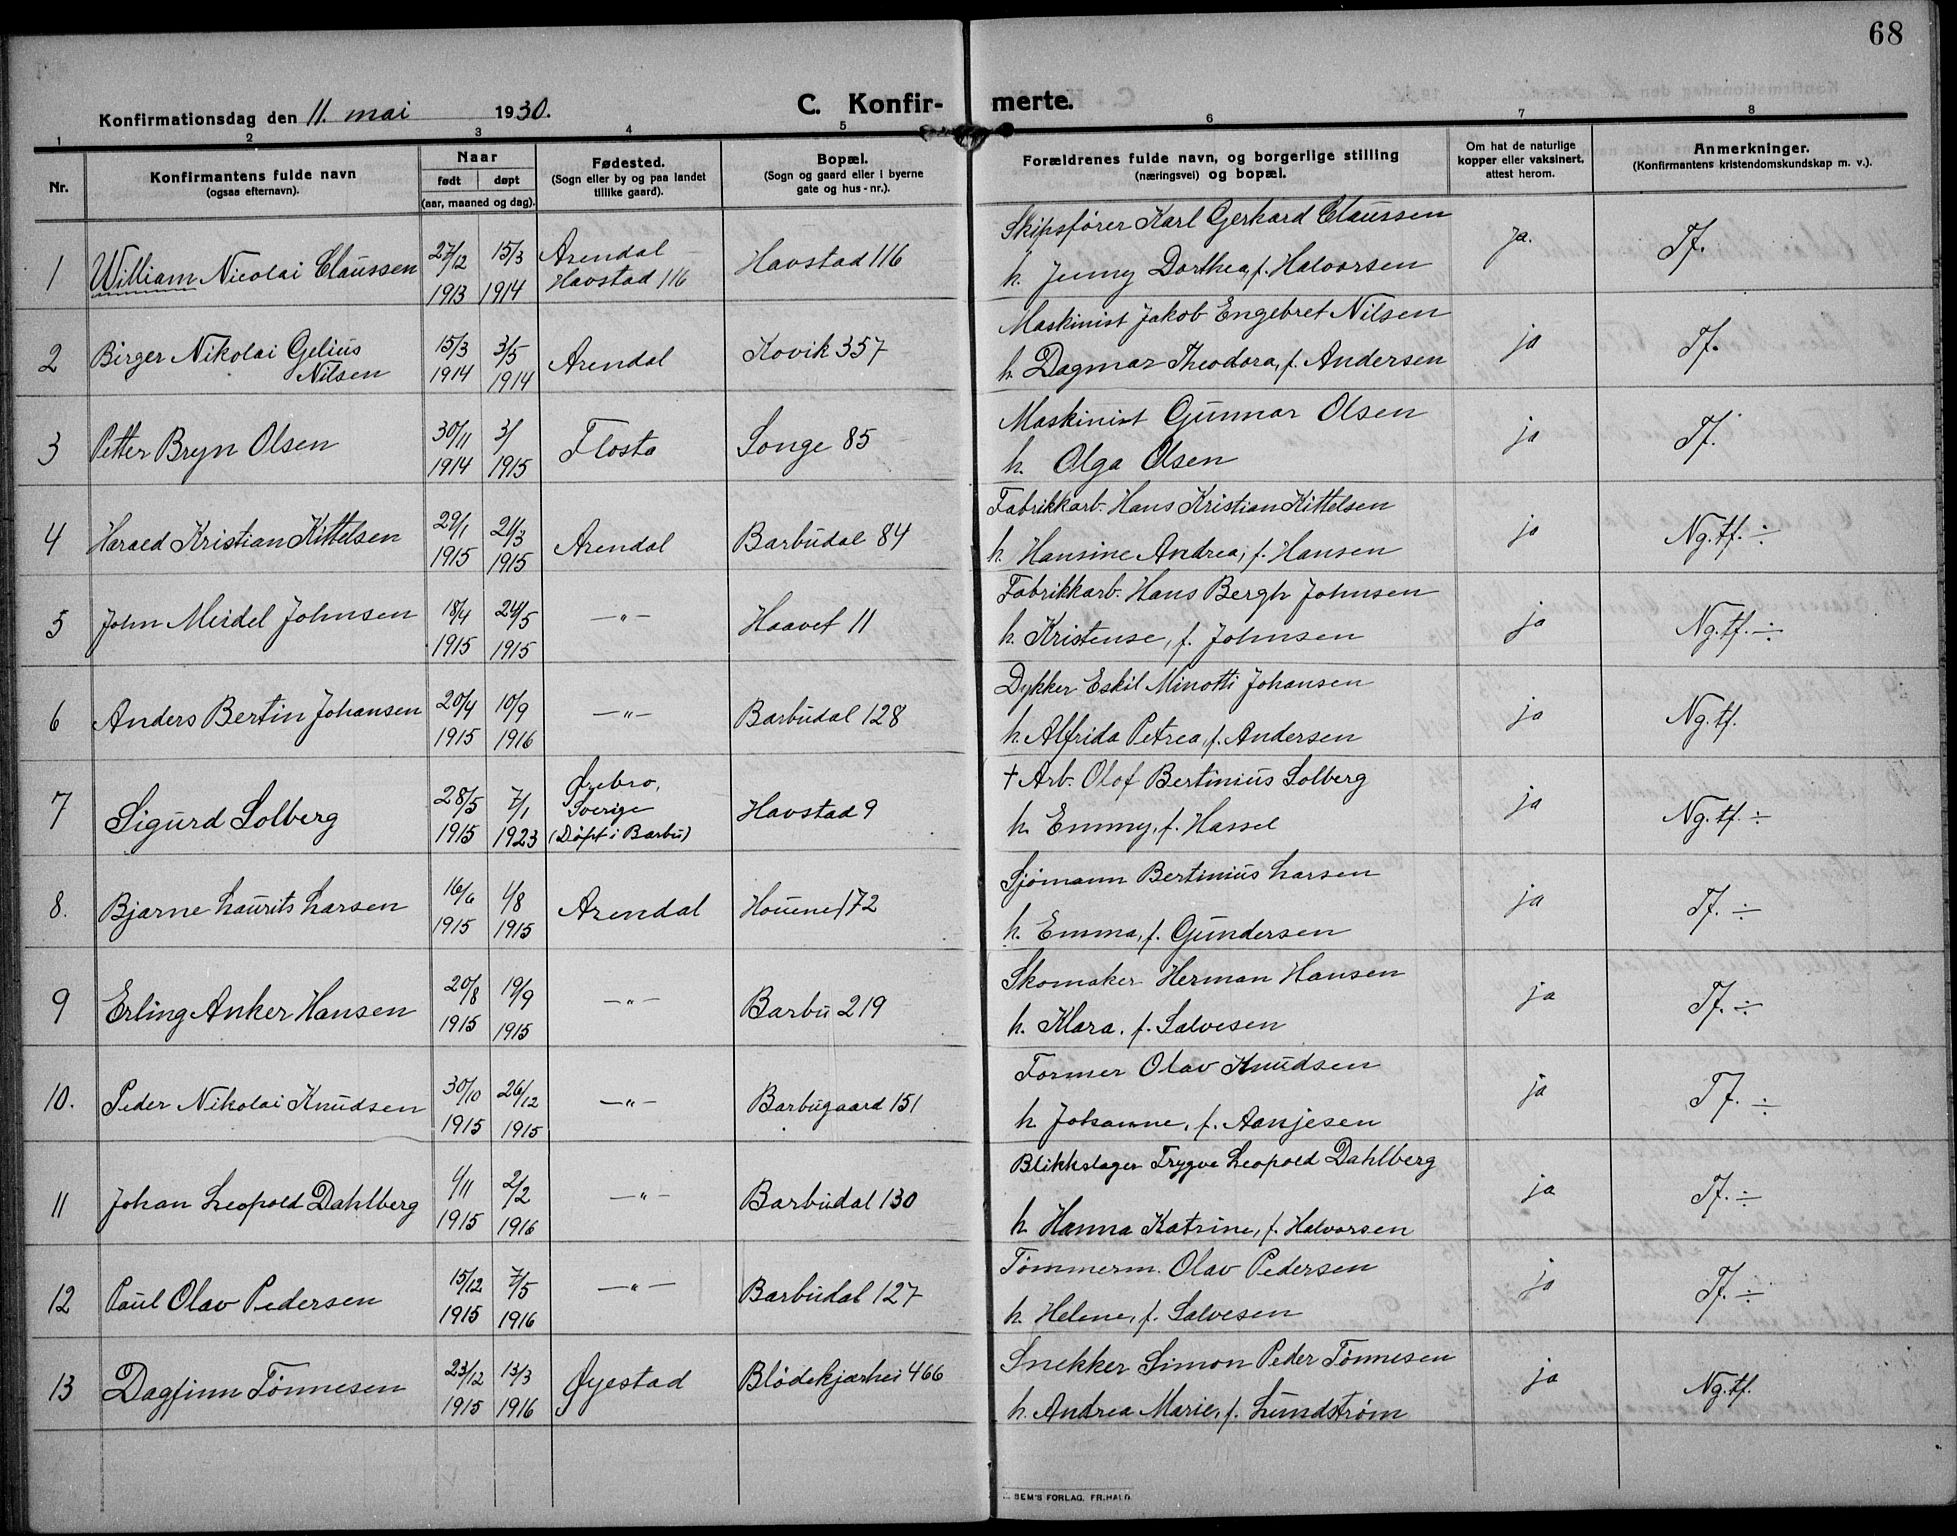 68
Konfirmationsdag den 11. mai 1930.
C. Konfir- merte.
1 2 3 4 5 6 7 8
Nr.
Konfirmantens fulde navn
(ogsaa efternavn).
Naar
født døpt
(aar, maaned og dag).
Fødested.
(Sogn eller by og paa landet
tillike gaard).
Bopæl.
(Sogn og gaard eller i byerne
gate og hus-nr.).
Forældrenes fulde navn, og borgerlige stilling
(næringsvei) og bopæl.
Om hat de naturlige
kopper eller vaksinert,
attest herom.
Anmerkninger.
(Konfirmantens kristendomskundskap m. v.).
1 William Nicolai Claussen 27/12 1913 15/3 1914 Arendal Havstad 116 Havstad 116 Skipsfører Karl Gerhard Claussen
h. Jenny Dorthea, f. Halvorsen ja. Tf.
2 Birger Nikolai Gelius
Nilsen 15/3 1914 3/5 1914 Arendal Kovik 357 Maskinist Jakob Engebret Nilsen
h. Dagmar Theodora, f. Andersen ja Tf.
3 Petter Bryn Olsen 30/11 1914 3/ 1915 Flosta Songe 85 Maskinist Gunnar Olsen
h. Olga Olsen ja Tf.
4 Harald Kristian Kittelsen 29/1 1915 21/3 1915 Arendal Barbudal 84 Fabrikkarb. Hans Kristian Kittelsen
h. Hansine Andrea, f. Hansen ja Ng. tf. ÷
5 John Meidel Johnsen 18/4 1915 24/5 1915 —"— Haavet 11 Fabrikkarb. Hans Bergh Johnsen
h. Kristense, f. Johnsen ja Ng. tf. ÷
6 Anders Bertin Johansen 20/4 1915 10/9 1916 —"— Barbudal 128 Dykker Eskil Minotti Johansen
h. Alfrida Petrea, f. Andersen ja Ng. tf.
7 Sigurd Solberg 28/5 1915 7/1 1923 Ørebro,
Sverige
(Døpt i Barbu) Havstad 9 † Arb. Olof Bertinius Solberg
h. Emmy, f. Hassel ja Ng. tf. ÷
8. Bjarne Laurits Larsen 16/6 1915 1/8 1915 Arendal Houene 172 Sjømann Bertinius Larsen
h. Emma, f. Gundersen ja Tf. ÷
9 Erling Anker Hansen 20/8 1915 19/9 1915 —"— Barbu 219 Skomaker Herman Hansen
h. Klara. f. Salvesen ja Tf. ÷
10. Peder Nikolai Knudsen 30/10 1915 26/12 1915 —"— Barbugaard 151 Former Olav Knudsen
h Johanne, f. Aanjesen ja Tf. ÷
11 Johan Leopold Dahlberg 1/11 1915 2/2 1916 —"— Barbudal 130 Blikkslager Trygve Leopold Dahlberg
h Hanna Katrine, f. Halvorsen ja Tf. ÷
12 Paul Olav Pedersen 15/12 1915 7/5 1916 —"— Barbudal 127 Tømmerm. Olav Pedersen
h. Helene, f. Salvesen ja Tf. ÷
13 Dagfinn Tønnesen 23/12 1915 13/3 1916 Øyestad Blødekjærhei 466 Snekker Simon Peder Tønnesen
h. Andrea Marie, f. Lundstrøm ja Ng. tf.
SEM'S FORLAG, FR.HALD.